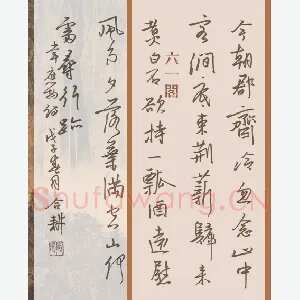 今朝郡齋冷忽念山中
客澗底束荊薪歸來
煮白石欲持一瓢酒遠慰
風雨夕落葉滿空山何
處尋行跡
韋應物詩 戊子春月
六一閣
Shufawang.CN